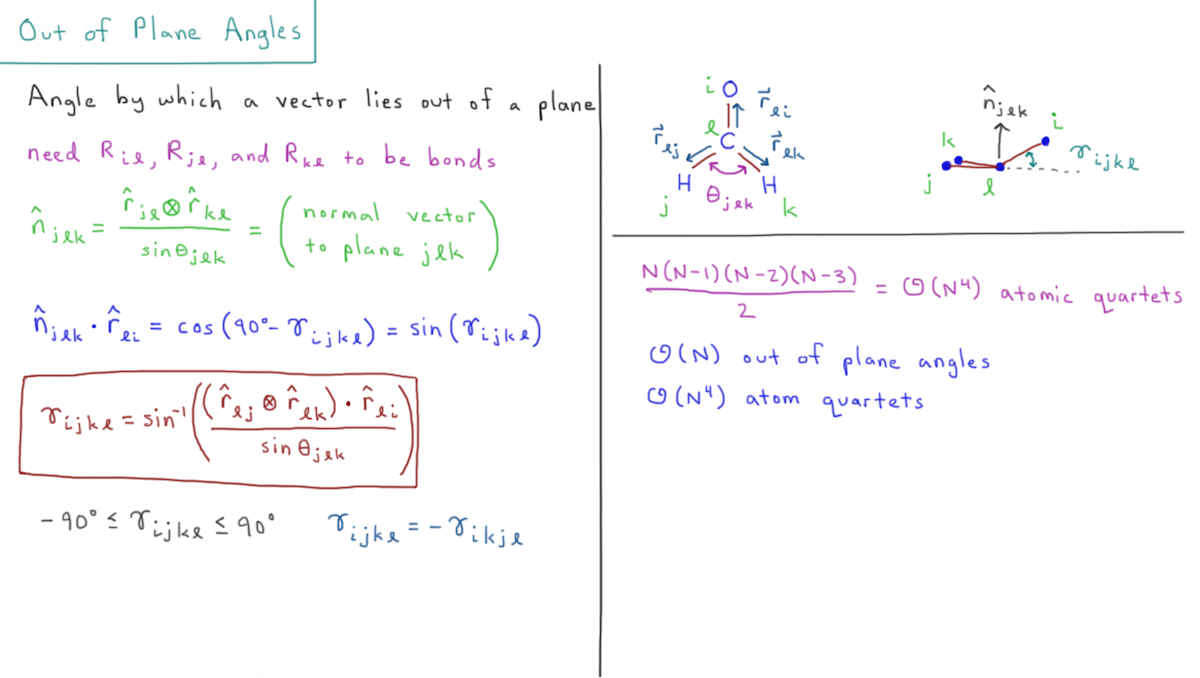 Out of Plane Angles
Angle by which a vector lies out of a plane
need R_iℓ, R_jℓ, and R_kℓ to be bonds
n̂_jℓk = (r̂_jℓ ⊗ r̂_kℓ) / sinθ_jℓk = (normal vector to plane jℓk)
n̂_jℓk · r̂_ℓi = cos(90°- γ_ijkℓ) = sin(γ_ijkℓ)
γ_ijkℓ = sin⁻¹((r̂_ℓj ⊗ r̂_ℓk) · r̂_ℓi / sin θ_jℓk)
-90° ≤ γ_ijkℓ ≤ 90°
γ_ijkℓ = - γ_ikjℓ
i O r⃗_ℓi
ℓ C
r⃗_ℓj r⃗_ℓk
H H
j θ_jℓk k
n̂_jℓk
k i
γ_ijkℓ
j ℓ
N(N-1)(N-2)(N-3) / 2 = O(N⁴) atomic quartets
O(N) out of plane angles
O(N⁴) atom quartets